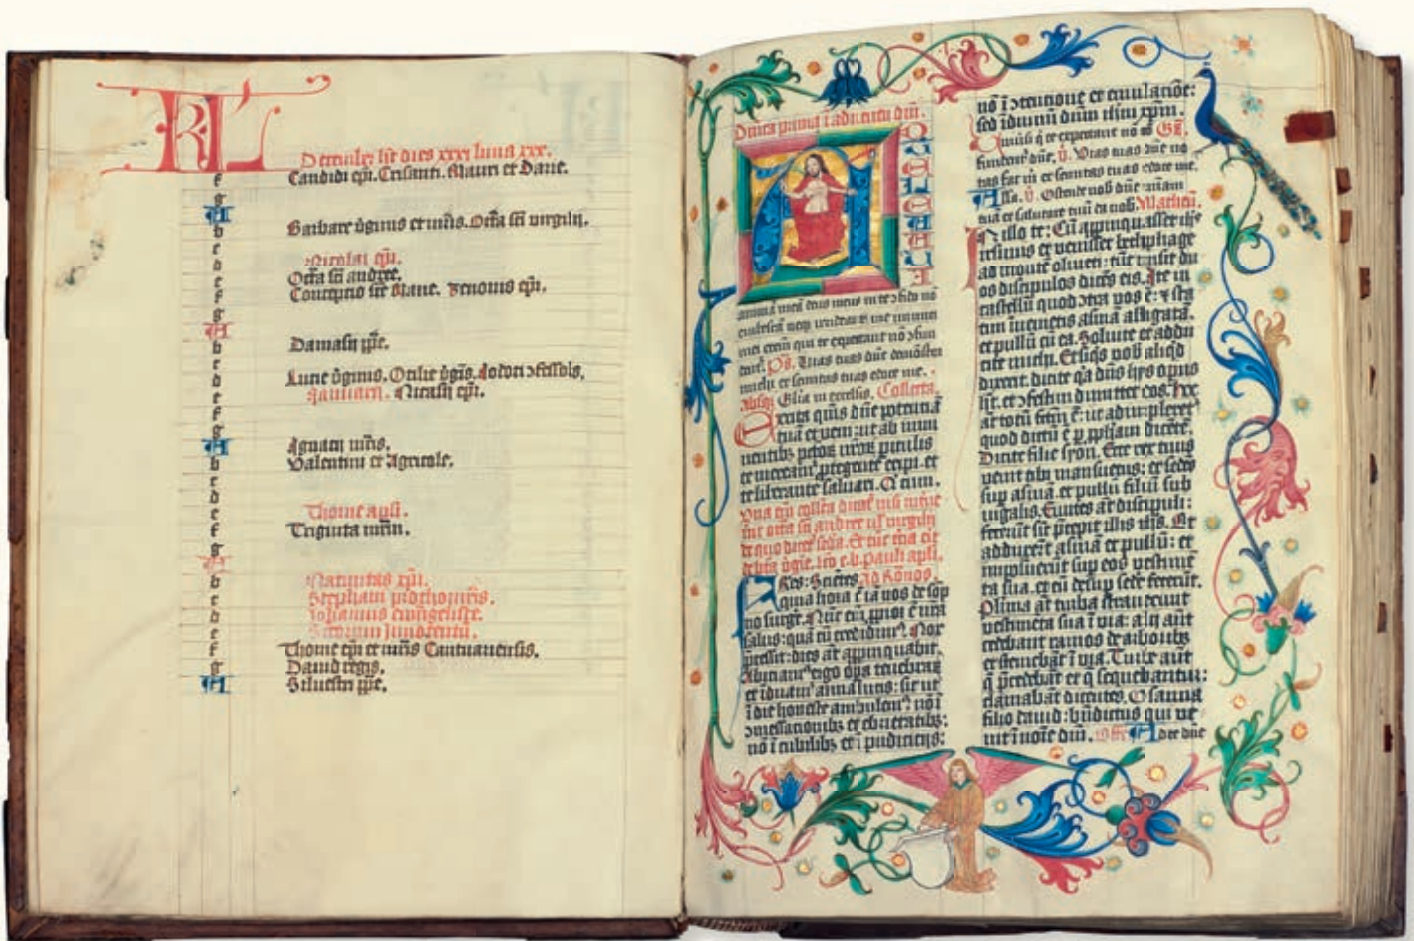 KL
Decembᷣ hꝫ dies xxxi luna xxx.
f Candidi epi. Crisanti. Mauri et Darie.
g
A
b Barbare vginis et mris. Octa sci virgilij.
c
d Nicolai epi.
e Octa sci andree.
f Conceptio sce Marie. Zenonis epi.
g
A
b Damasij ppe.
c
d Lucie vginis. Otilie vgis. Jodoci ɔfessoris.
e Nicasij epi.
f
g
A Ignacij mris.
b Valentini et Agricole.
c
d
e Thome apli.
f Triginta mrm.
g
A
b Natiuitas xpi.
c Stephani prothomris.
d Johannis ewangeliste.
e Sctorum Innocentu.
f Thome epi et mris Cantuariensis.
g Dauid regis.
A Siluestri ppe.
Dnica prima i aduentu dni.
AD TE LEUAUI
animā meā deus meus in te ɔfido nō
erubescā neqꝫ irrideant me inimici
mei etem qui te expectant nō ɔfun
dent. Ps. Vias tuas dne demōstra
michi et semitas tuas edoce me.
Absqꝫ Glia in excelsis. Collecta.
Excita qms dne potenciā
tuā et veni: ut ab immi
nentibꝫ petoꝝ nroꝝ periculis
te mereamᷣ ptegente eripi. et
te liberante saluari. Q̄ cum.
octa sci andree ul virgilij
Pauli apli.
Ad Ronos.
Fres: Scientes
quia hora ē iā nos de sop
no surge. Nūc em ppior ē nra
salus: quā cū credidimᷣ. Nox
pcessit: dies āt appinquabit.
Abiciamᷣ ergo opa tenebraꝝ
et iduamᷣ arma lucis: sic ut
i die honeste ambulemᷣ: nō i
ɔmessacionibꝫ et ebrietatibꝫ:
nō i cubilibꝫ et ipudiciciis:
nō i ɔtencione et emulacioē:
sed iduimi dnm ihm xpm.
Vniusi q te expectant nō ɔ
fundent dne. V. Vias tuas dne no
tas fac m et semitas tuas edoce me.
Alla. V. Ostende nob dne miam
tuā et salutare tuū da nob. Matheū.
In illo te: Cū appinquasset ihs
ierosolimis et venisset betphage
ad montē oliueti: tūc misit du
os discipulos dicēs eis. Ite in
castellū quod ɔtra vos ē: et sta
tim iuenietis asinā alligatā
et pullū cū ea. Soluite et addu
cite michi. Et siqs vob aliqd
dixerit. dicite qa dns hijs opus
hꝫ. et ɔfestim dimittet eos. Hoc
āt totū fcm ē: ut adimpleretᷣ
quod dictū ē p ppham dicētē.
Dicite filie syon. Ecce rex tuus
venit tibi mansuetus: et sedēs
sup asinā et pullū filiū sub
iugalis. Euntes āt discipuli:
fecerūt sic pcepit illis ihs. Et
adduxerūt asinā et pullū: et
imposuerūt sup eos vestimē
ta sua. et eū desup sede fecerūt.
Plurima āt turba strauerunt
vestimēta sua i via: alij aūt
cedebant ramos de arboribꝫ
et sternebāt i via. Turbe aūt
q pcedebāt et q sequebantur:
clamabāt dicentes. Osanna
filio dauid: bndictus qui ve
nit i noie dni. Offm Ad te dne